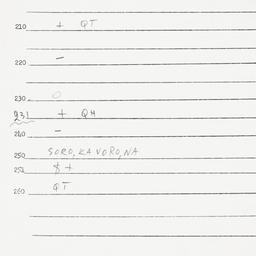 210 + QT
220 –
230 O
231 + QM
240 –
250 SORO, KA VORO, NA
252 $ +
260 QT